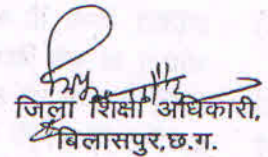 जिला शिक्षा अधिकारी,
बिलासपुर,छ.ग.